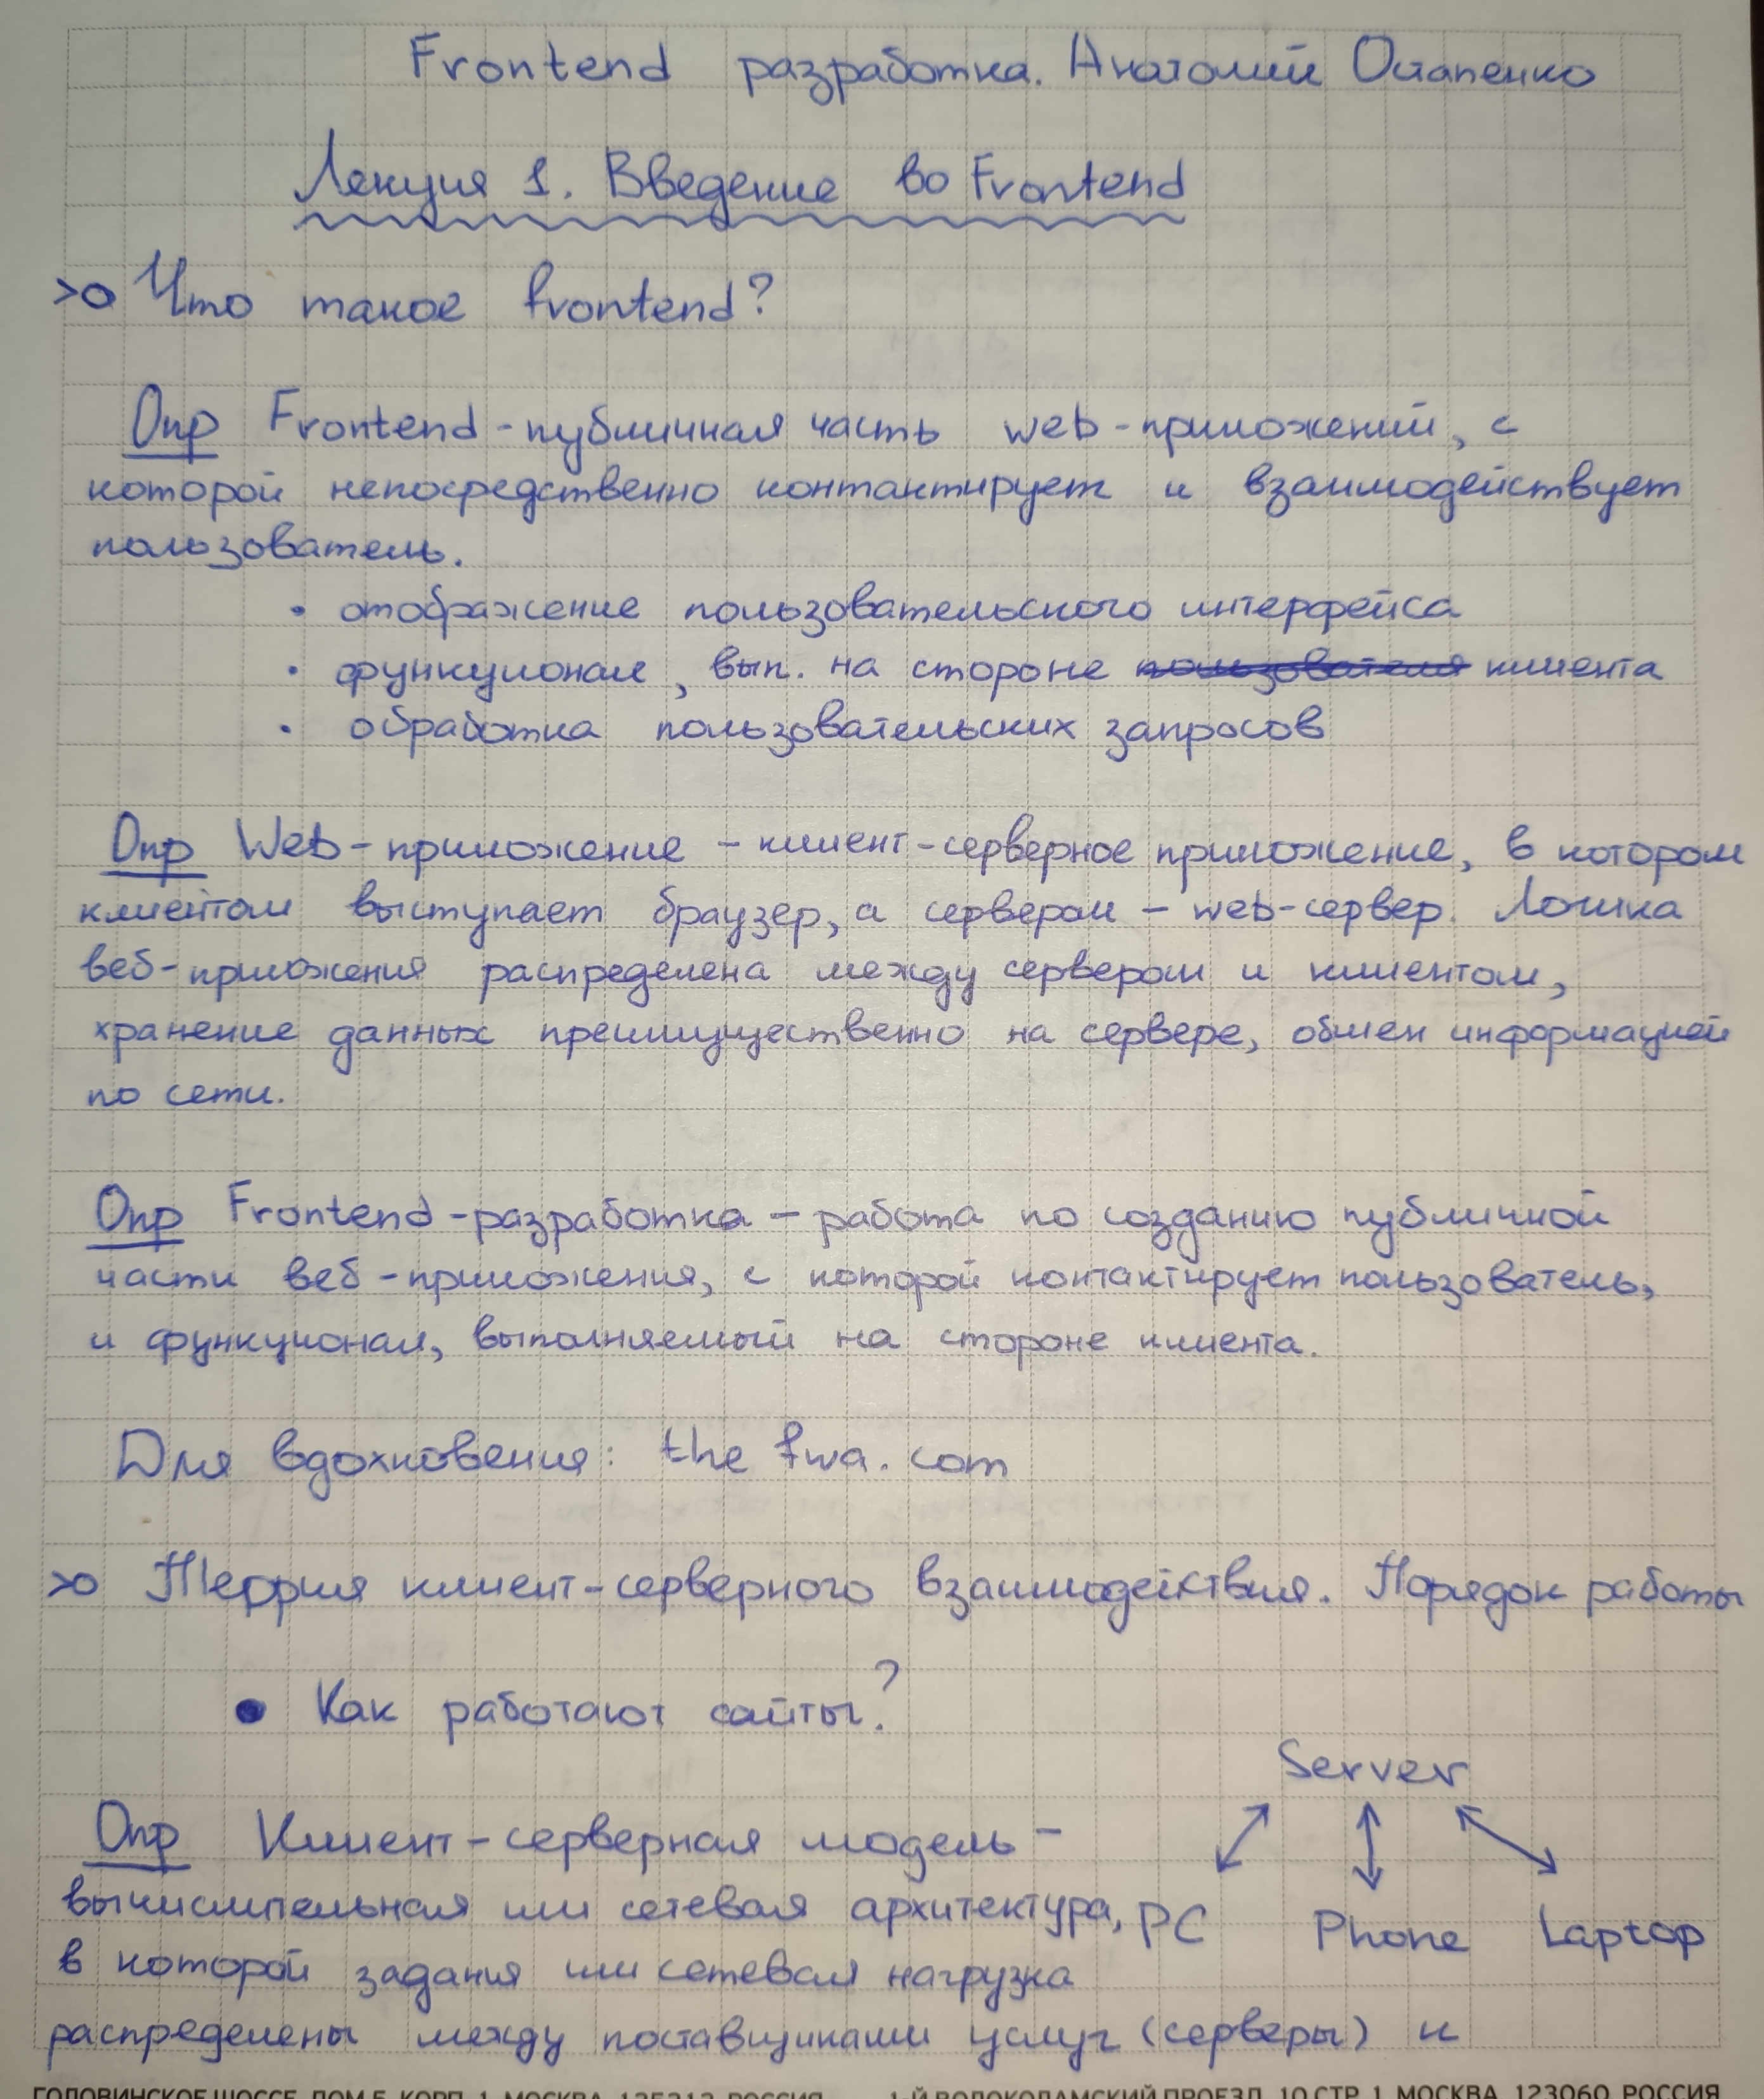 Frontend разработка. Анатолий Остапенко
Лекция 1. Введение во Frontend
Что такое frontend?
Опр Frontend - публичная часть web-приложений, с
которой непосредственно контактирует и взаимодействует
пользователь.
• отображение пользовательского интерфейса
• функционал, вып. на стороне пользователя клиента
• обработка пользовательских запросов
Опр Web-приложение - клиент-серверное приложение, в котором
клиентом выступает браузер, а сервером - web-сервер. Логика
веб-приложения распределена между сервером и клиентом,
хранение данных преимущественно на сервере, обмен информацией
по сети.
Опр Frontend-разработка - работа по созданию публичной
части веб-приложения, с которой контактирует пользователь,
и функционал, выполняемый на стороне клиента.
Для вдохновения: the fwa.com
Теория клиент-серверного взаимодействия. Порядок работы
• Как работают сайты?
Server
Опр Клиент-серверная модель -
вычислительная или сетевая архитектура,
PC Phone Laptop
в которой задания или сетевая нагрузка
распределены между поставщиками услуг (серверы) и
ГОЛОВИНСКОЕ ШОССЕ, ДОМ 5, КОРП. 1, МОСКВА, 125212, РОССИЯ 1-Й ВОЛОКОЛАМСКИЙ ПРОЕЗД, 10 СТР. 1, МОСКВА, 123060, РОССИЯ